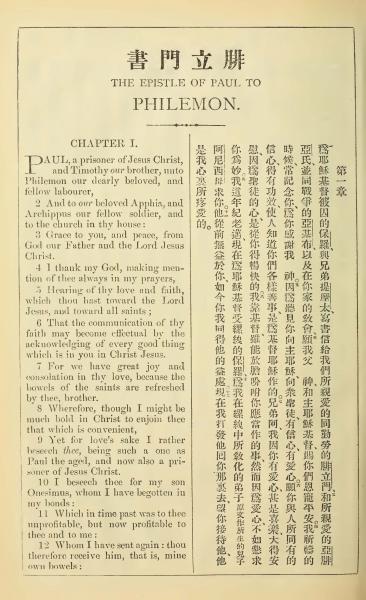 腓立門書
THE EPISTLE OF PAUL TO
PHILEMON.
CHAPTER I.
PAUL, a prisoner of Jesus Christ,
and Timothy our brother, unto
Philemon our dearly beloved, and
fellow labourer,
2 And to our beloved Apphia, and
Archippus our fellow soldier, and
to the church in thy house:
3 Grace to you, and peace, from
God our Father and the Lord Jesus
Christ.
4 I thank my God, making men-
tion of thee always in my prayers,
5 Hearing of thy love and faith,
which thou hast toward the Lord
Jesus, and toward all saints;
6 That the communication of thy
faith may become effectual by the
acknowledging of every good thing
which is in you in Christ Jesus.
7 For we have great joy and
consolation in thy love, because the
bowels of the saints are refreshed
by thee, brother.
8 Wherefore, though I might be
much bold in Christ to enjoin thee
that which is convenient,
9 Yet for love's sake I rather
beseech thee, being such a one as
Paul the aged, and now also a pri-
soner of Jesus Christ.
10 I beseech thee for my son
Onesimus, whom I have begotten in
my bonds:
11 Which in time past was to thee
unprofitable, but now profitable to
thee and to me:
12 Whom I have sent again: thou
therefore receive him, that is, mine
own bowels:
第一章
爲耶穌基督被囚的保羅與兄弟提摩太寫書信給我們所親愛的同勤勞的腓立門和所親愛的亞腓
亞氏並同戰爭的亞基布以及在你家的敎會願我父 神和主耶穌基督賜你們恩寵平安我祈禱的
時候常記念你爲你感謝我 神因爲聽見你向主耶穌向衆聖徒有信心有愛心願你與人所同有的
信心得有功效使人知道你們各樣善事是爲基督耶穌作的兄弟阿我因你有愛心甚是喜樂大得安
慰因爲聖徒的心是從你得暢快的我靠基督雖能放膽吩咐你應當作的事然而因爲愛心不如懇求
你爲妙我這年紀老邁現在爲耶穌基督受縲絏的保羅爲我在縲絏中所敎化的弟子原文作所生的兒子
阿尼西母求你他從前無益於你如今你我同得他的益處現在我打發他回你那裏去望你接待他他
是我心裏所疼愛的